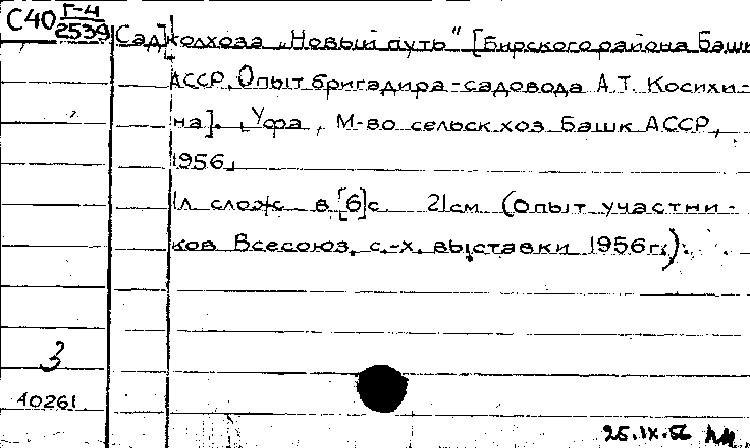 С40 Г-4/2539
Сад колхоза „Новый путь" [Бирского района Башк
АССР. Опыт бригадира-садовода А.Т. Косихи-
на]. [Уфа, М-во сельск хоз Башк АССР,
1956]
1л слож в [6]с 21см (Опыт участни-
ков Всесоюз. с.-х. выставки 1956г.).
3
А0261
25.IX.56